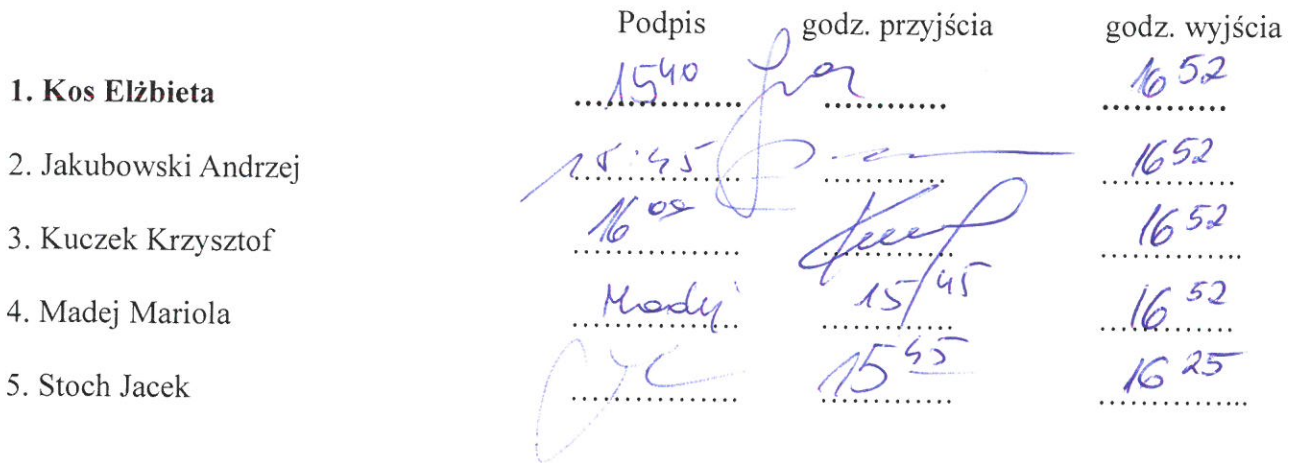 Podpis godz. przyjścia godz. wyjścia
1. Kos Elżbieta 15 40 16 52
2. Jakubowski Andrzej 15:45 16 52
3. Kuczek Krzysztof 16 00 16 52
4. Madej Mariola Madej 15/45 16 52
5. Stoch Jacek 15 45 16 25